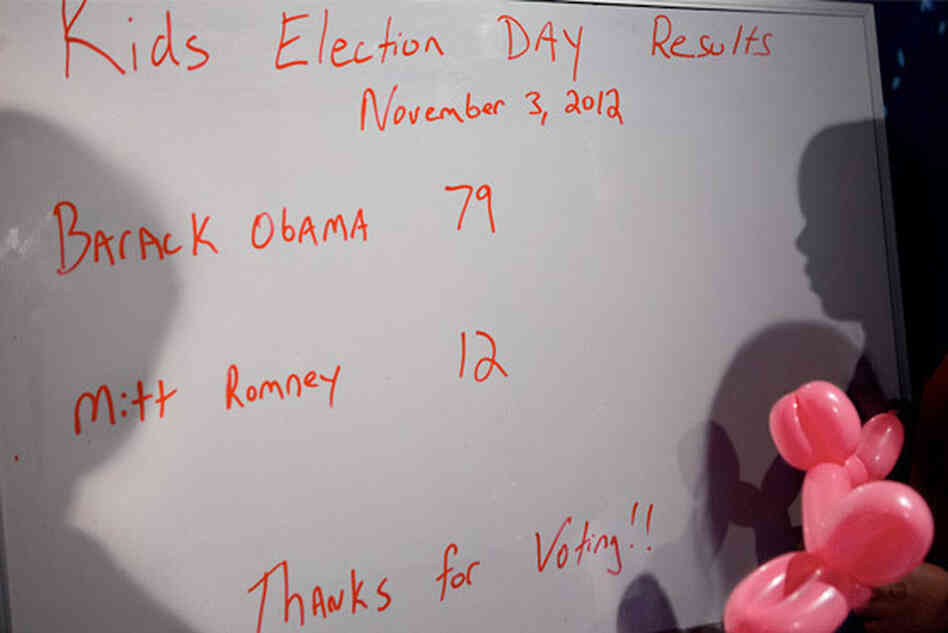 Kids Election DAY Results
November 3, 2012
BArAcK ObAMA 79
Mitt Romney 12
THANKS for Voting!!